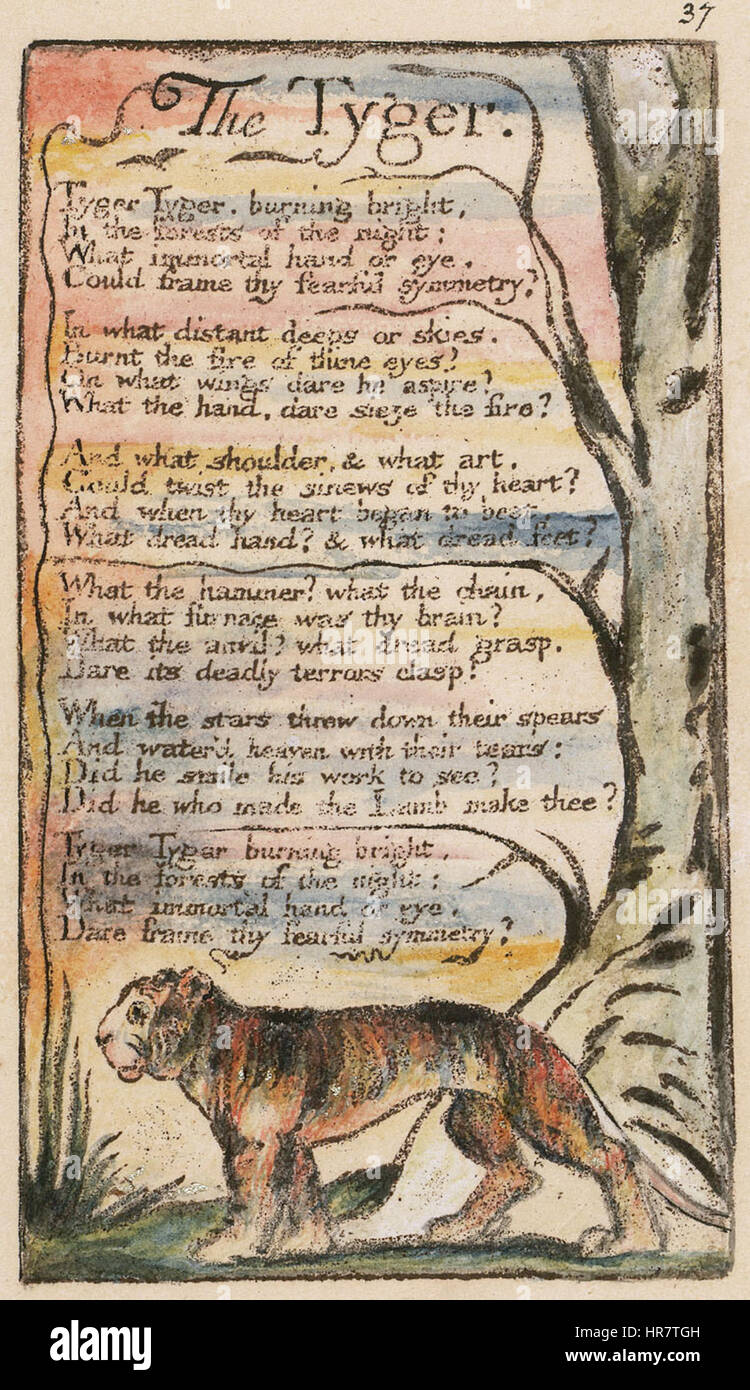 37
The Tyger.
Tyger Tyger. burning bright,
In the forests of the night:
What immortal hand or eye.
Could frame thy fearful symmetry?
In what distant deeps or skies.
Burnt the fire of thine eyes?
On what wings dare he aspire?
What the hand, dare sieze the fire?
And what shoulder, & what art,
Could twist the sinews of thy heart?
And when thy heart began to beat,
What dread hand? & what dread feet?
What the hammer? what the chain,
In what furnace was thy brain?
What the anvil? what dread grasp.
Dare its deadly terrors clasp!
When the stars threw down their spears
And water'd heaven with their tears:
Did he smile his work to see?
Did he who made the Lamb make thee?
Tyger Tyger burning bright,
In the forests of the night:
What immortal hand or eye,
Dare frame thy fearful symmetry?
alamy
alamy
Image ID: HR7TGH
www.alamy.com